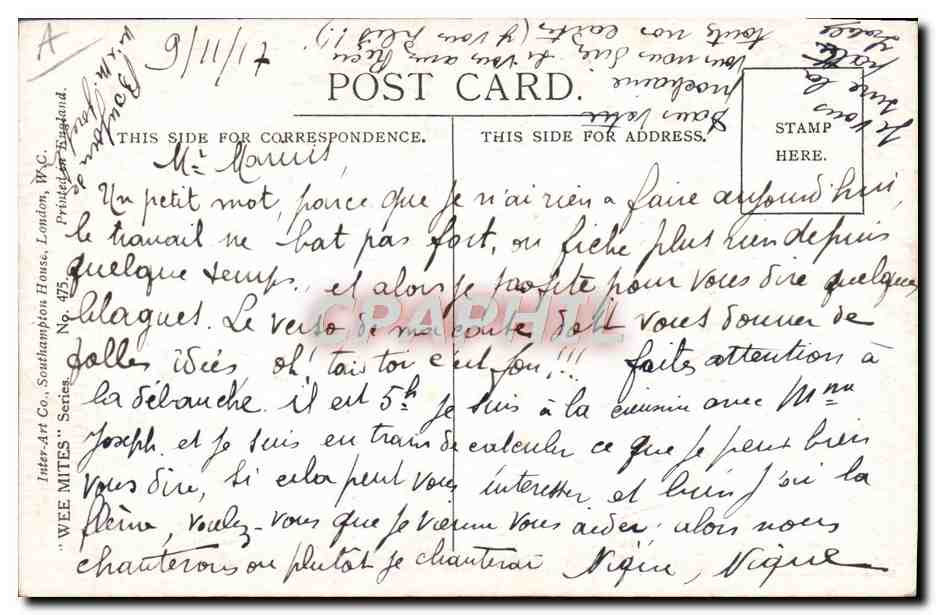 A
9/11/17
POST CARD.
THIS SIDE FOR CORRESPONDENCE.
THIS SIDE FOR ADDRESS.
STAMP
HERE.
Inter-Art Co., Southampton House, London, W.C.
"WEE MITES" Series. No. 475. Printed in England.
Mr Marius,
Un petit mot, parce que je n'ai rien a faire aujourd'hui,
le travail ne bat pas fort, on fiche plus rien depuis
quelque temps, et alors je profite pour vous dire quelques
blagues. Le verso de ma carte doit vous donner de
folles idées, oh! tais toi c'est fou!!! faites attention à
la débauche. il est 5h je suis à la cuisine avec Mme
Joseph et je suis en train de calculer ce que je peux bien
vous dire, si cela peut vous interesser, et bien j'ai la
flème, voulez-vous que je vienne vous aider, alors nous
chanterons ou plutot je chanterai Nigue, Nigue
Bonjour de
Mr Mme
Je vous
serre la
patte
dans votre
prochaine
vous nous direz si vous avez reçu
toute nos cartes (
CPARPHIL